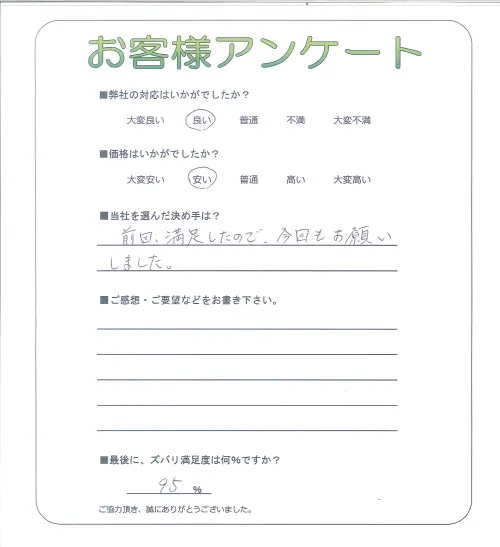 お客様アンケート
■弊社の対応はいかがでしたか？
大変良い 良い 普通 不満 大変不満
■価格はいかがでしたか？
大変安い 安い 普通 高い 大変高い
■当社を選んだ決め手は？
前回、満足したので、今回もお願い
しました。
■ご感想・ご要望などをお書き下さい。
■最後に、ズバリ満足度は何%ですか？
95 %
ご協力頂き、誠にありがとうございました。